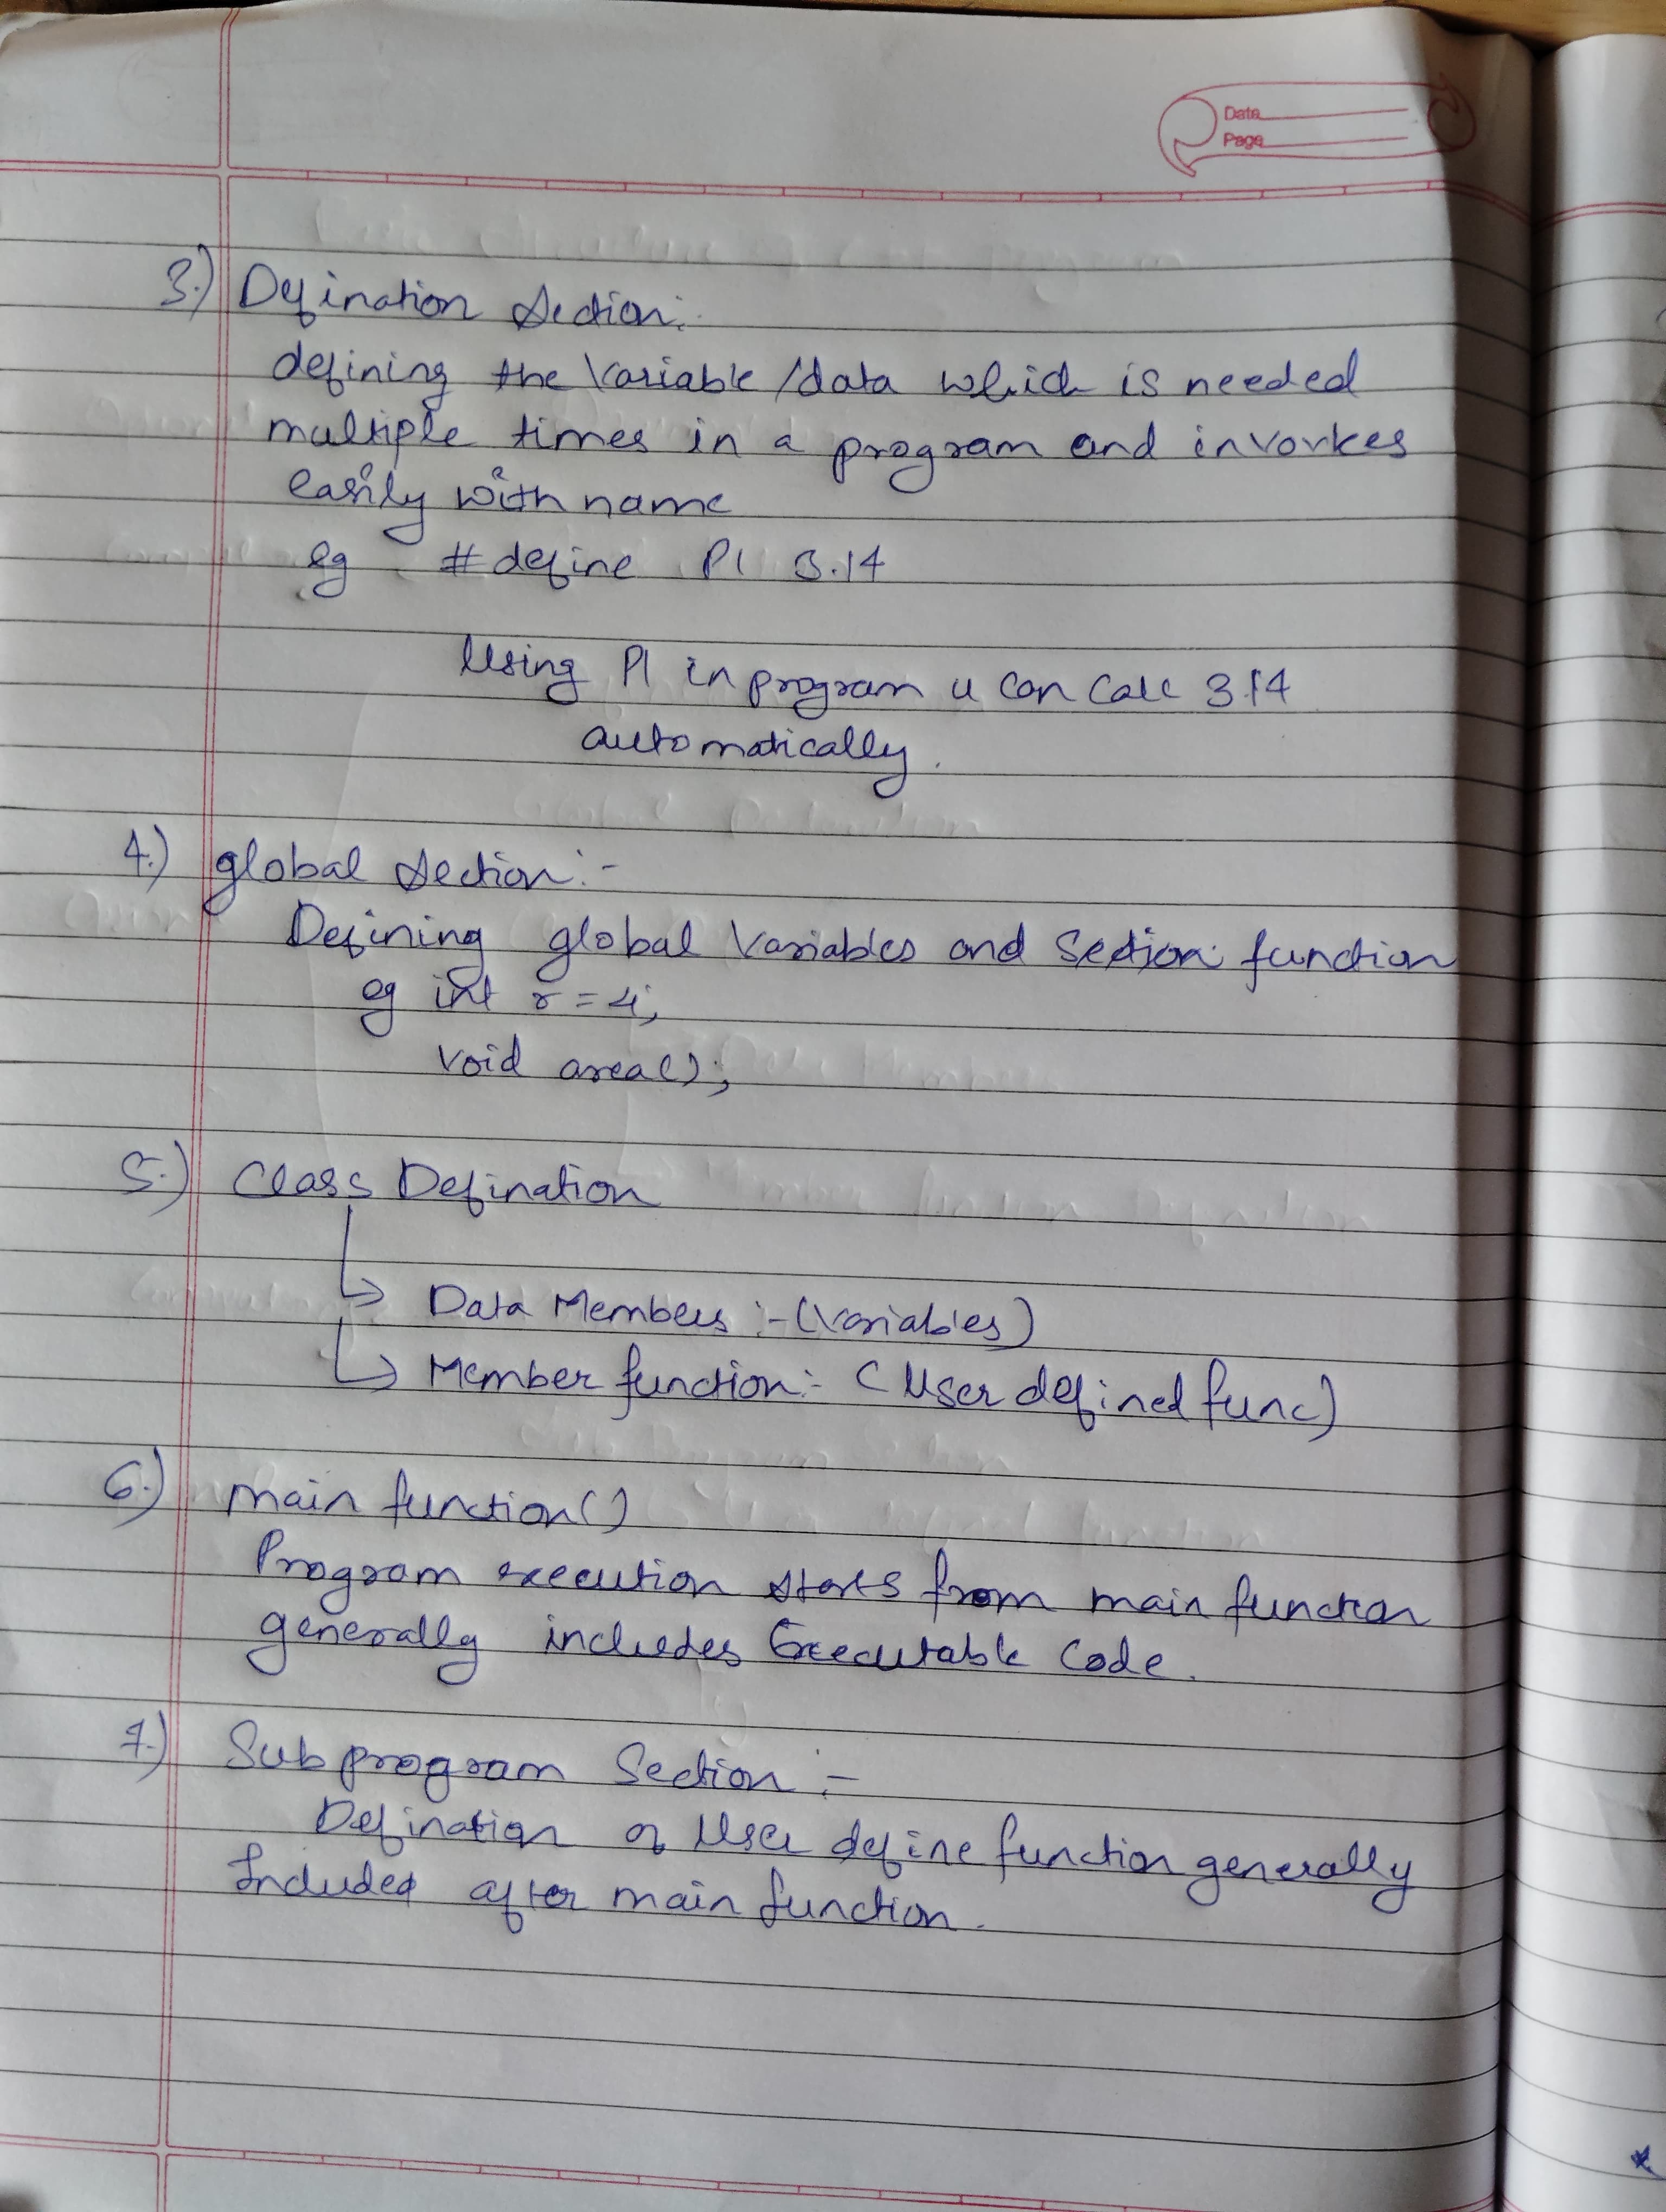 Date
Page
3.) Defination Section:
defining the Variable/data which is needed
multiple times in a program and invorkes
easily with name
eg #define PI 3.14
Using PI in program u can call 3.14
automatically.
4.) global Section:-
Defining global Variables and Section function
eg int r=4;
void area();
5.) Class Defination
↳ Data Members :- (Variables)
↳ Member function:- (User defined func)
6.) main function()
Program execution starts from main function
generally includes Executable Code.
7.) Sub program Section :-
Defination of User define function generally
Included after main function.